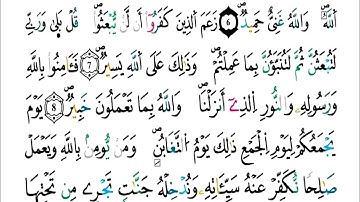 اَ۬للَّهُۖ وَاللَّهُ غَنِيٌّ حَمِيدٞۖ 6 زَعَمَ اَ۬لذِينَ كَفَرُوٓاْ أَن لَّنْ يُّبْعَثُواْۖ قُلْ بَل۪ىٰ وَرَبِّے
لَتُبْعَثُنَّ ثُمَّ لَتُنَبَّؤُنَّ بِمَا عَمِلْتُمْۖ وَذَٰلِكَ عَلَى اَ۬للَّهِ يَسِيرٞۖ 7 فَـَٔامِنُواْ بِاللَّهِ
وَرَسُولِهِۦ وَالنُّورِ اِ۬لذِےٓ أَنزَلْنَاۖ وَاللَّهُ بِمَا تَعْمَلُونَ خَبِيرٞۖ 8 يَوْمَ
يَجْمَعُكُمْ لِيَوْمِ اِ۬لْجَمْعِ ذَٰلِكَ يَوْمُ اُ۬لتَّغَابُنِۖ وَمَنْ يُّومِنۢ بِاللَّهِ وَيَعْمَلْ
صَٰلِحاٗ نُّكَفِّرْ عَنْهُ سَيِّـَٔاتِهِۦ وَنُدْخِلْهُ جَنَّٰتٖ تَجْرِے مِن تَحْتِهَا